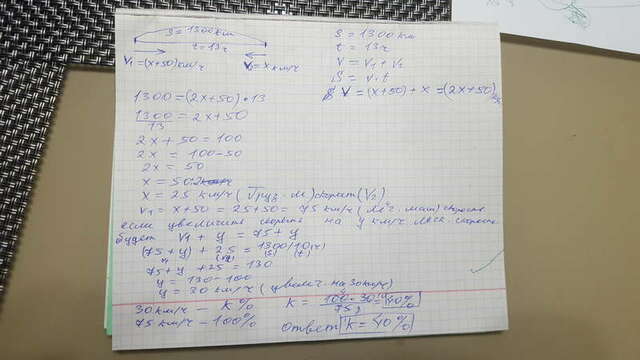 S = 1300 km
t = 13 ч
V₁ = (x+50) км/ч
V₂ = x км/ч
S = 1300 km
t = 13 ч
V = V₁ + V₂
S = v·t
V = (x+50) + x = (2x+50)
1300 = (2x+50) · 13
1300/13 = 2x + 50
2x + 50 = 100
2x = 100 - 50
2x = 50
x = 50:2
x = 25 км/ч (груз. м) скорост (V₂)
V₁ = x+50 = 25+50 = 75 км/ч (легк. маш) скорость
если увеличить скорость на y км/ч легк. скорость
будет V₁ + y = 75 + y
(75+y) + 25 = 1300/10 (ч)
(S) (t)
75+y+25 = 130
y = 130-100
y = 30 км/ч (увелич. на 30км/ч)
30 км/ч — k%
75 км/ч — 100%
k = 100·30/75 = 40%
ответ k = 40%